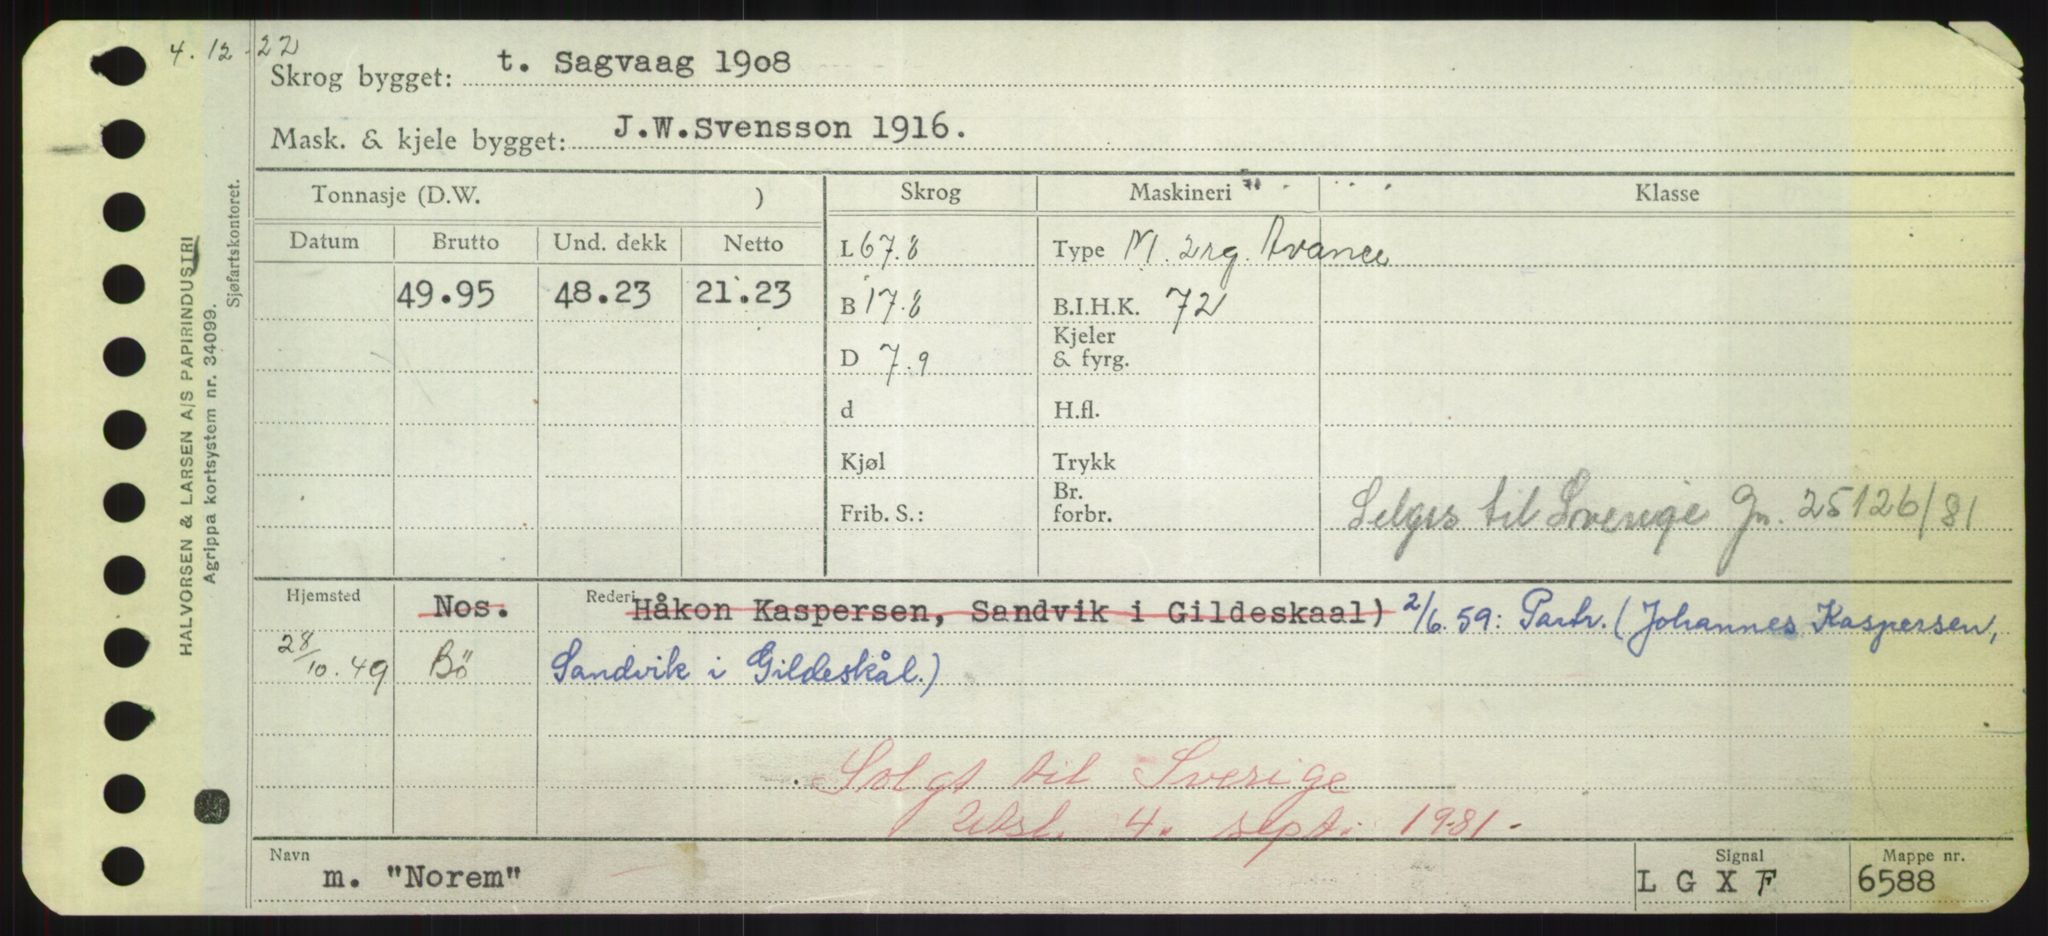 4.12.22
Skrog bygget: t. Sagvaag 1908
Mask. & kjele bygget: J.W.Svensson 1916.
Tonnasje (D.W. ) Skrog Maskineri Klasse
Datum Brutto Und. dekk Netto
49.95 48.23 21.23
L 67.8 Type M. 2 rg. Avance
B 17.8 B.I.H.K. 72
D 7.9 Kjeler & fyrg.
d H.fl.
Kjøl Trykk
Frib. S.: Br. forbr.
Selges til Sverige Jn. 25126/81
Hjemsted Nos. Rederi Håkon Kaspersen, Sandvik i Gildeskaal) 2/6.59: Partr. (Johannes Kaspersen,
28/10.49 Bö Sandvik i Gildeskål.)
Solgt til Sverige
Utsl. 4. sept. 1981.
Navn m. "Norem" Signal L G X F Mappe nr. 6588
HALVORSEN & LARSEN A/S PAPIRINDUSTRI
Agrippa kortsystem nr. 34099.
Sjøfartskontoret.